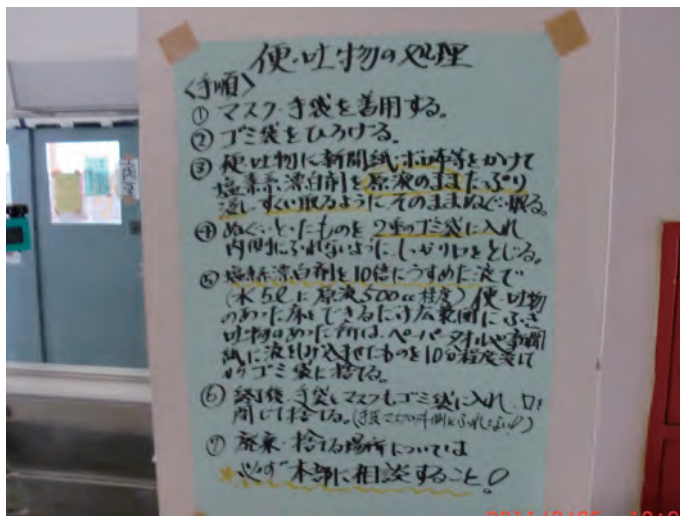 便・吐物の処理
〈手順〉
① マスク・手袋を着用する。
② ゴミ袋をひろげる。
③ 便・吐物に新聞紙・ボロ布等をかけて
塩素系漂白剤を原液のままたっぷり
浸し すくい取るように そのままぬぐい取る。
④ ぬぐいとったものを 2重のゴミ袋に入れ
内側にふれないように しっかり口をとじる。
⑤ 塩素系漂白剤を10倍にうすめた液で
(水5ℓに原液500cc程度) 便・吐物
のあった床をできるだけ広範囲にふき
吐物のあった所は、ペーパータオルや新聞
紙に液をしみ込ませたものを10分程度
からゴミ袋に捨てる。
⑥ 終了後、手袋・マスクもゴミ袋に入れ、口を
閉じて捨てる。
⑦ 廃棄・捨てる場所については
必ず 本部に相談すること!